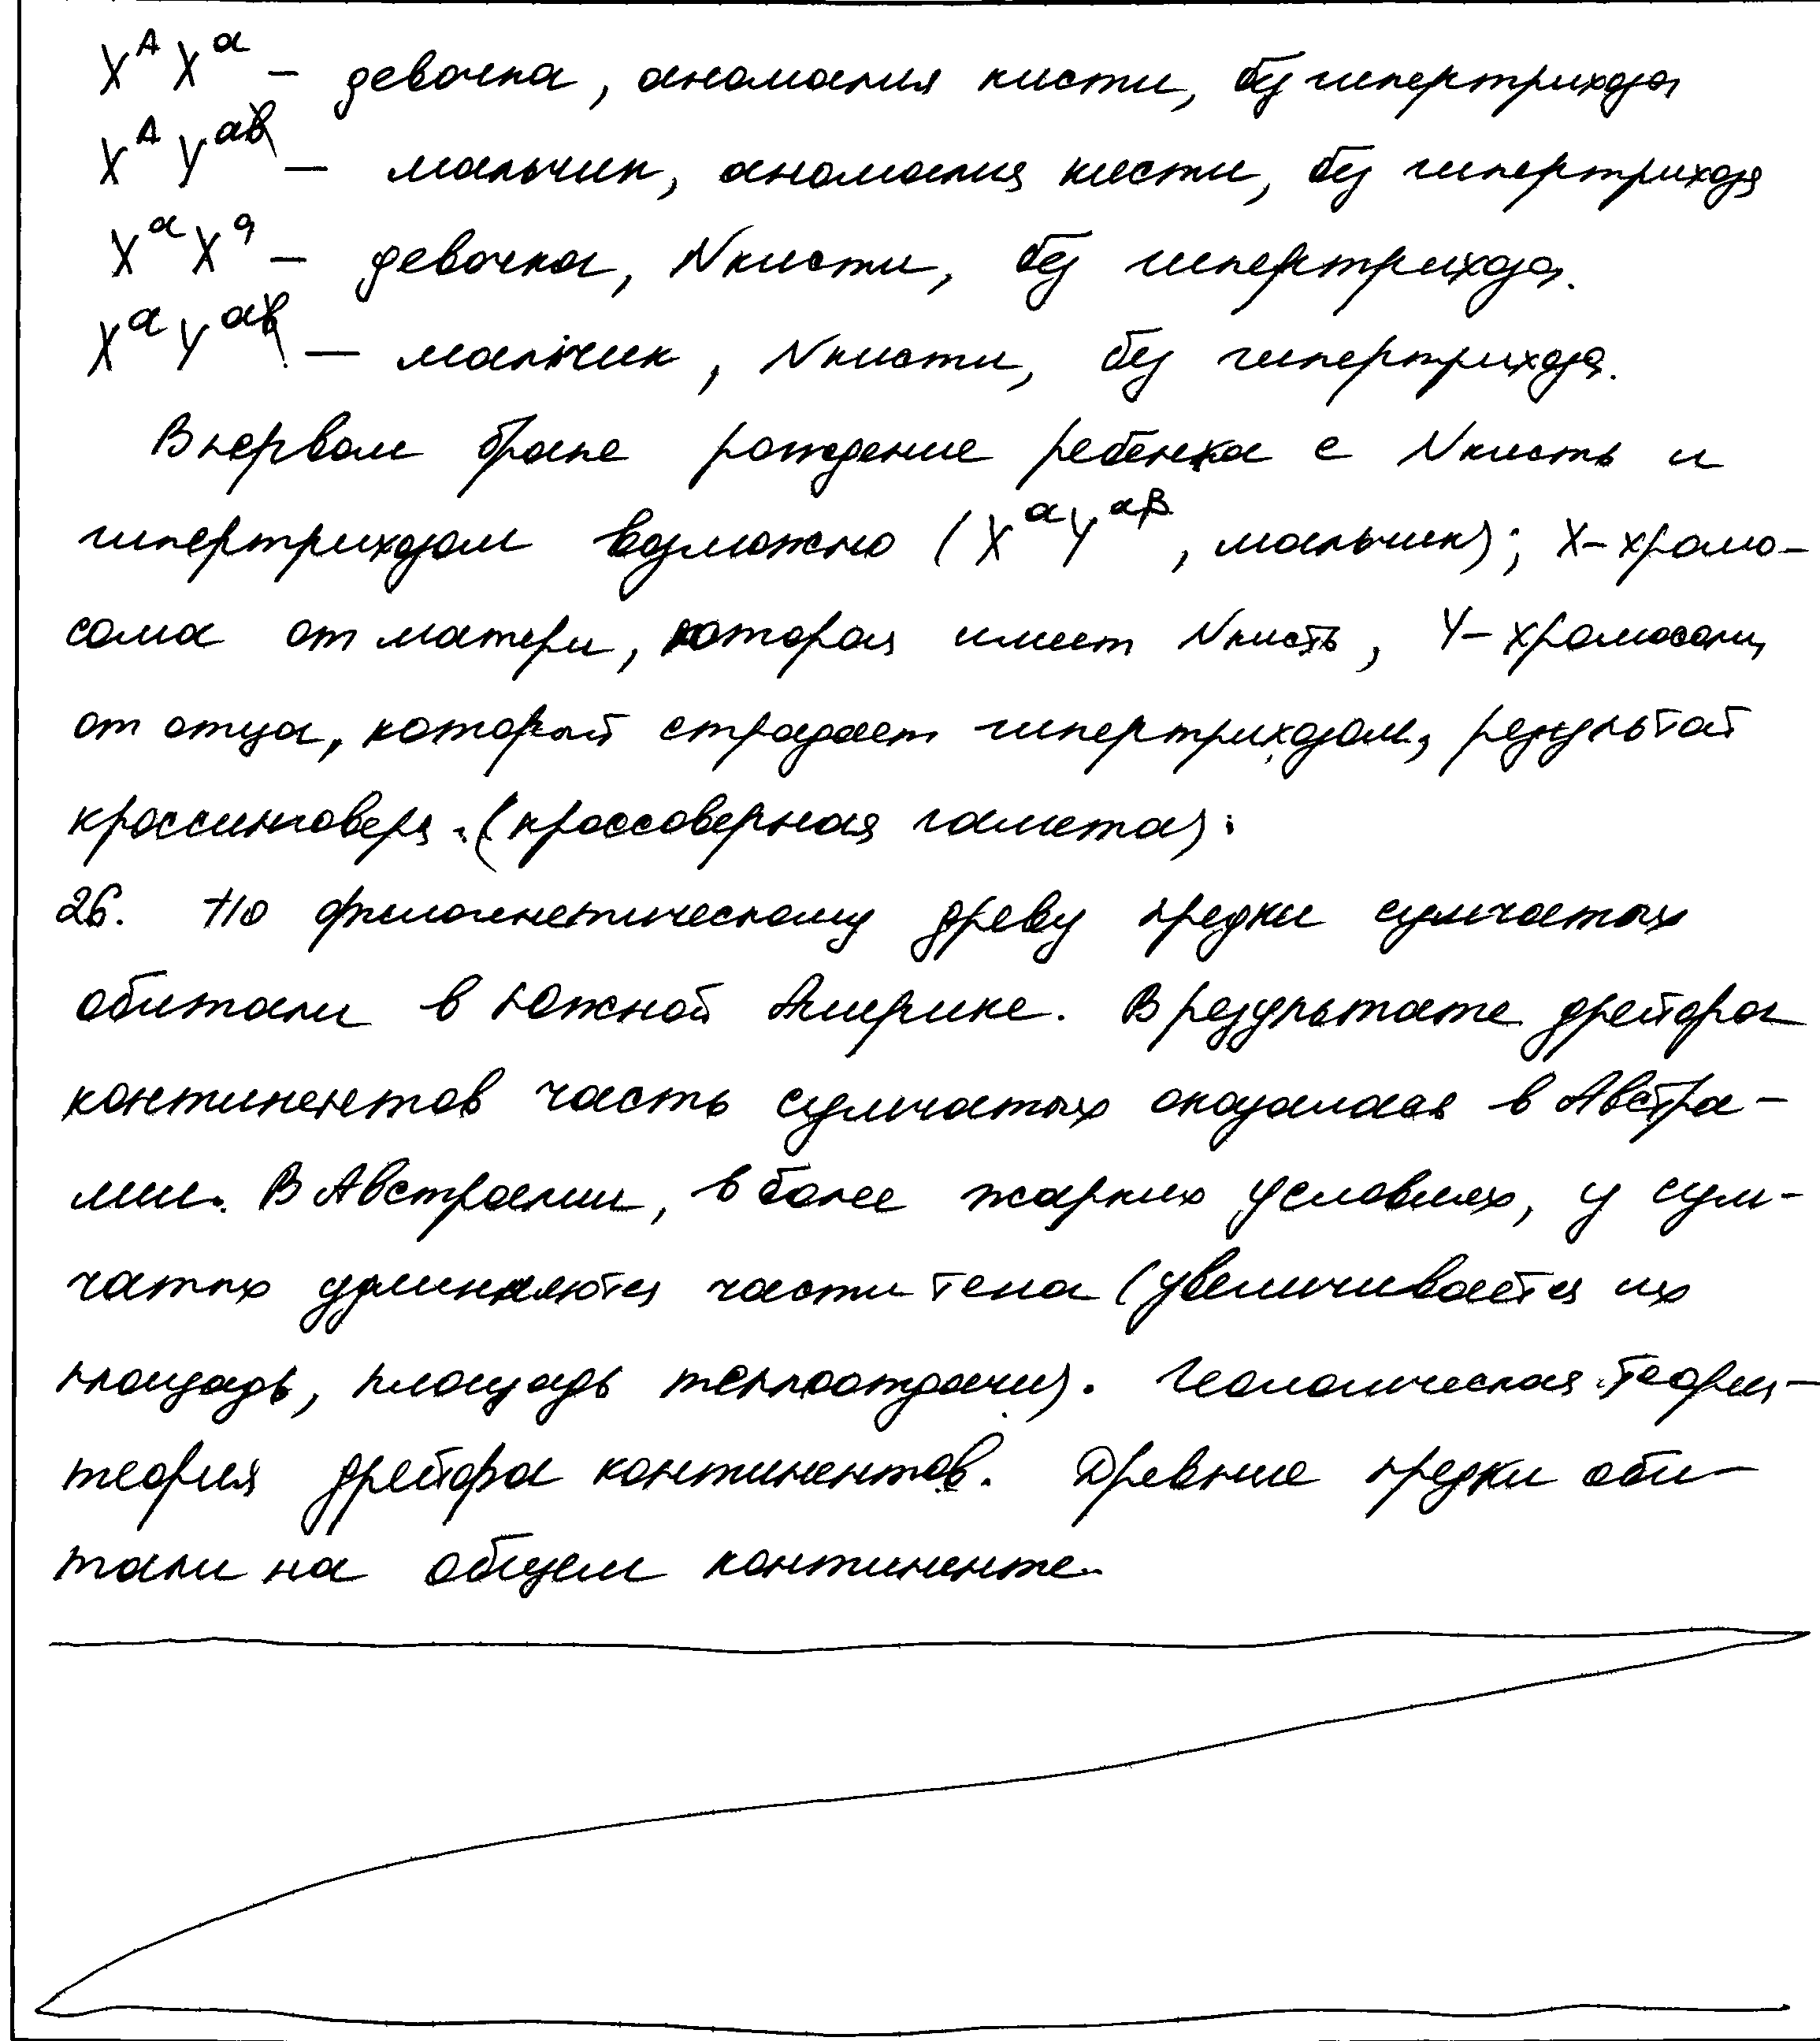 X^A X^a – девочка, аномалия кисти, без гипертрихоза
X^A Y^ab – мальчик, аномалия кисти, без гипертрихоза
X^a X^a – девочка, N кисти, без гипертрихоза.
X^a Y^ab – мальчик, N кисти, без гипертрихоза.
В первом браке рождение ребенка с N кисть и
гипертрихозом возможно (X^a Y^aB, мальчик); X-хромо-
сома от матери, которая имеет N кисть, Y-хромосома
от отца, который страдает гипертрихозом, результат
кроссинговера. (кроссоверная гамета).
26. По филогенетическому древу предки сумчатых
обитали в Южной Америке. В результате дрейфа
континентов часть сумчатых оказалась в Австра-
лии. В Австралии, в более жарких условиях, у сум-
чатых удлиняются части тела (увеличивается их
площадь, площадь теплоотдачи). Геологическая теория –
теория дрейфа континентов. Древние предки оби-
тали на общем континенте.